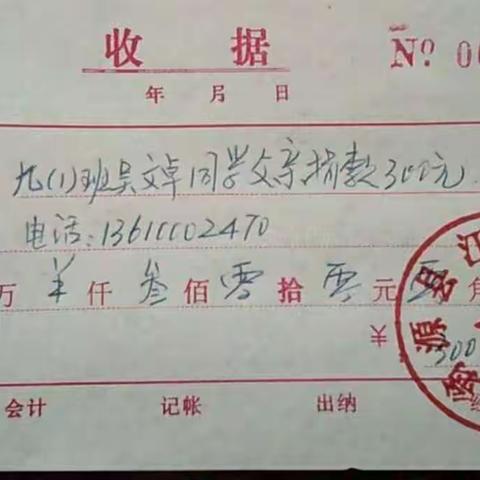 收据
№ 00
年 月 日
九(1)班吴文卓同学父亲捐款300元.
电话:13610002470
万 羊 仟 叁 佰 零 拾 零 元 零 角
¥ 300
会计 记帐 出纳
源县江